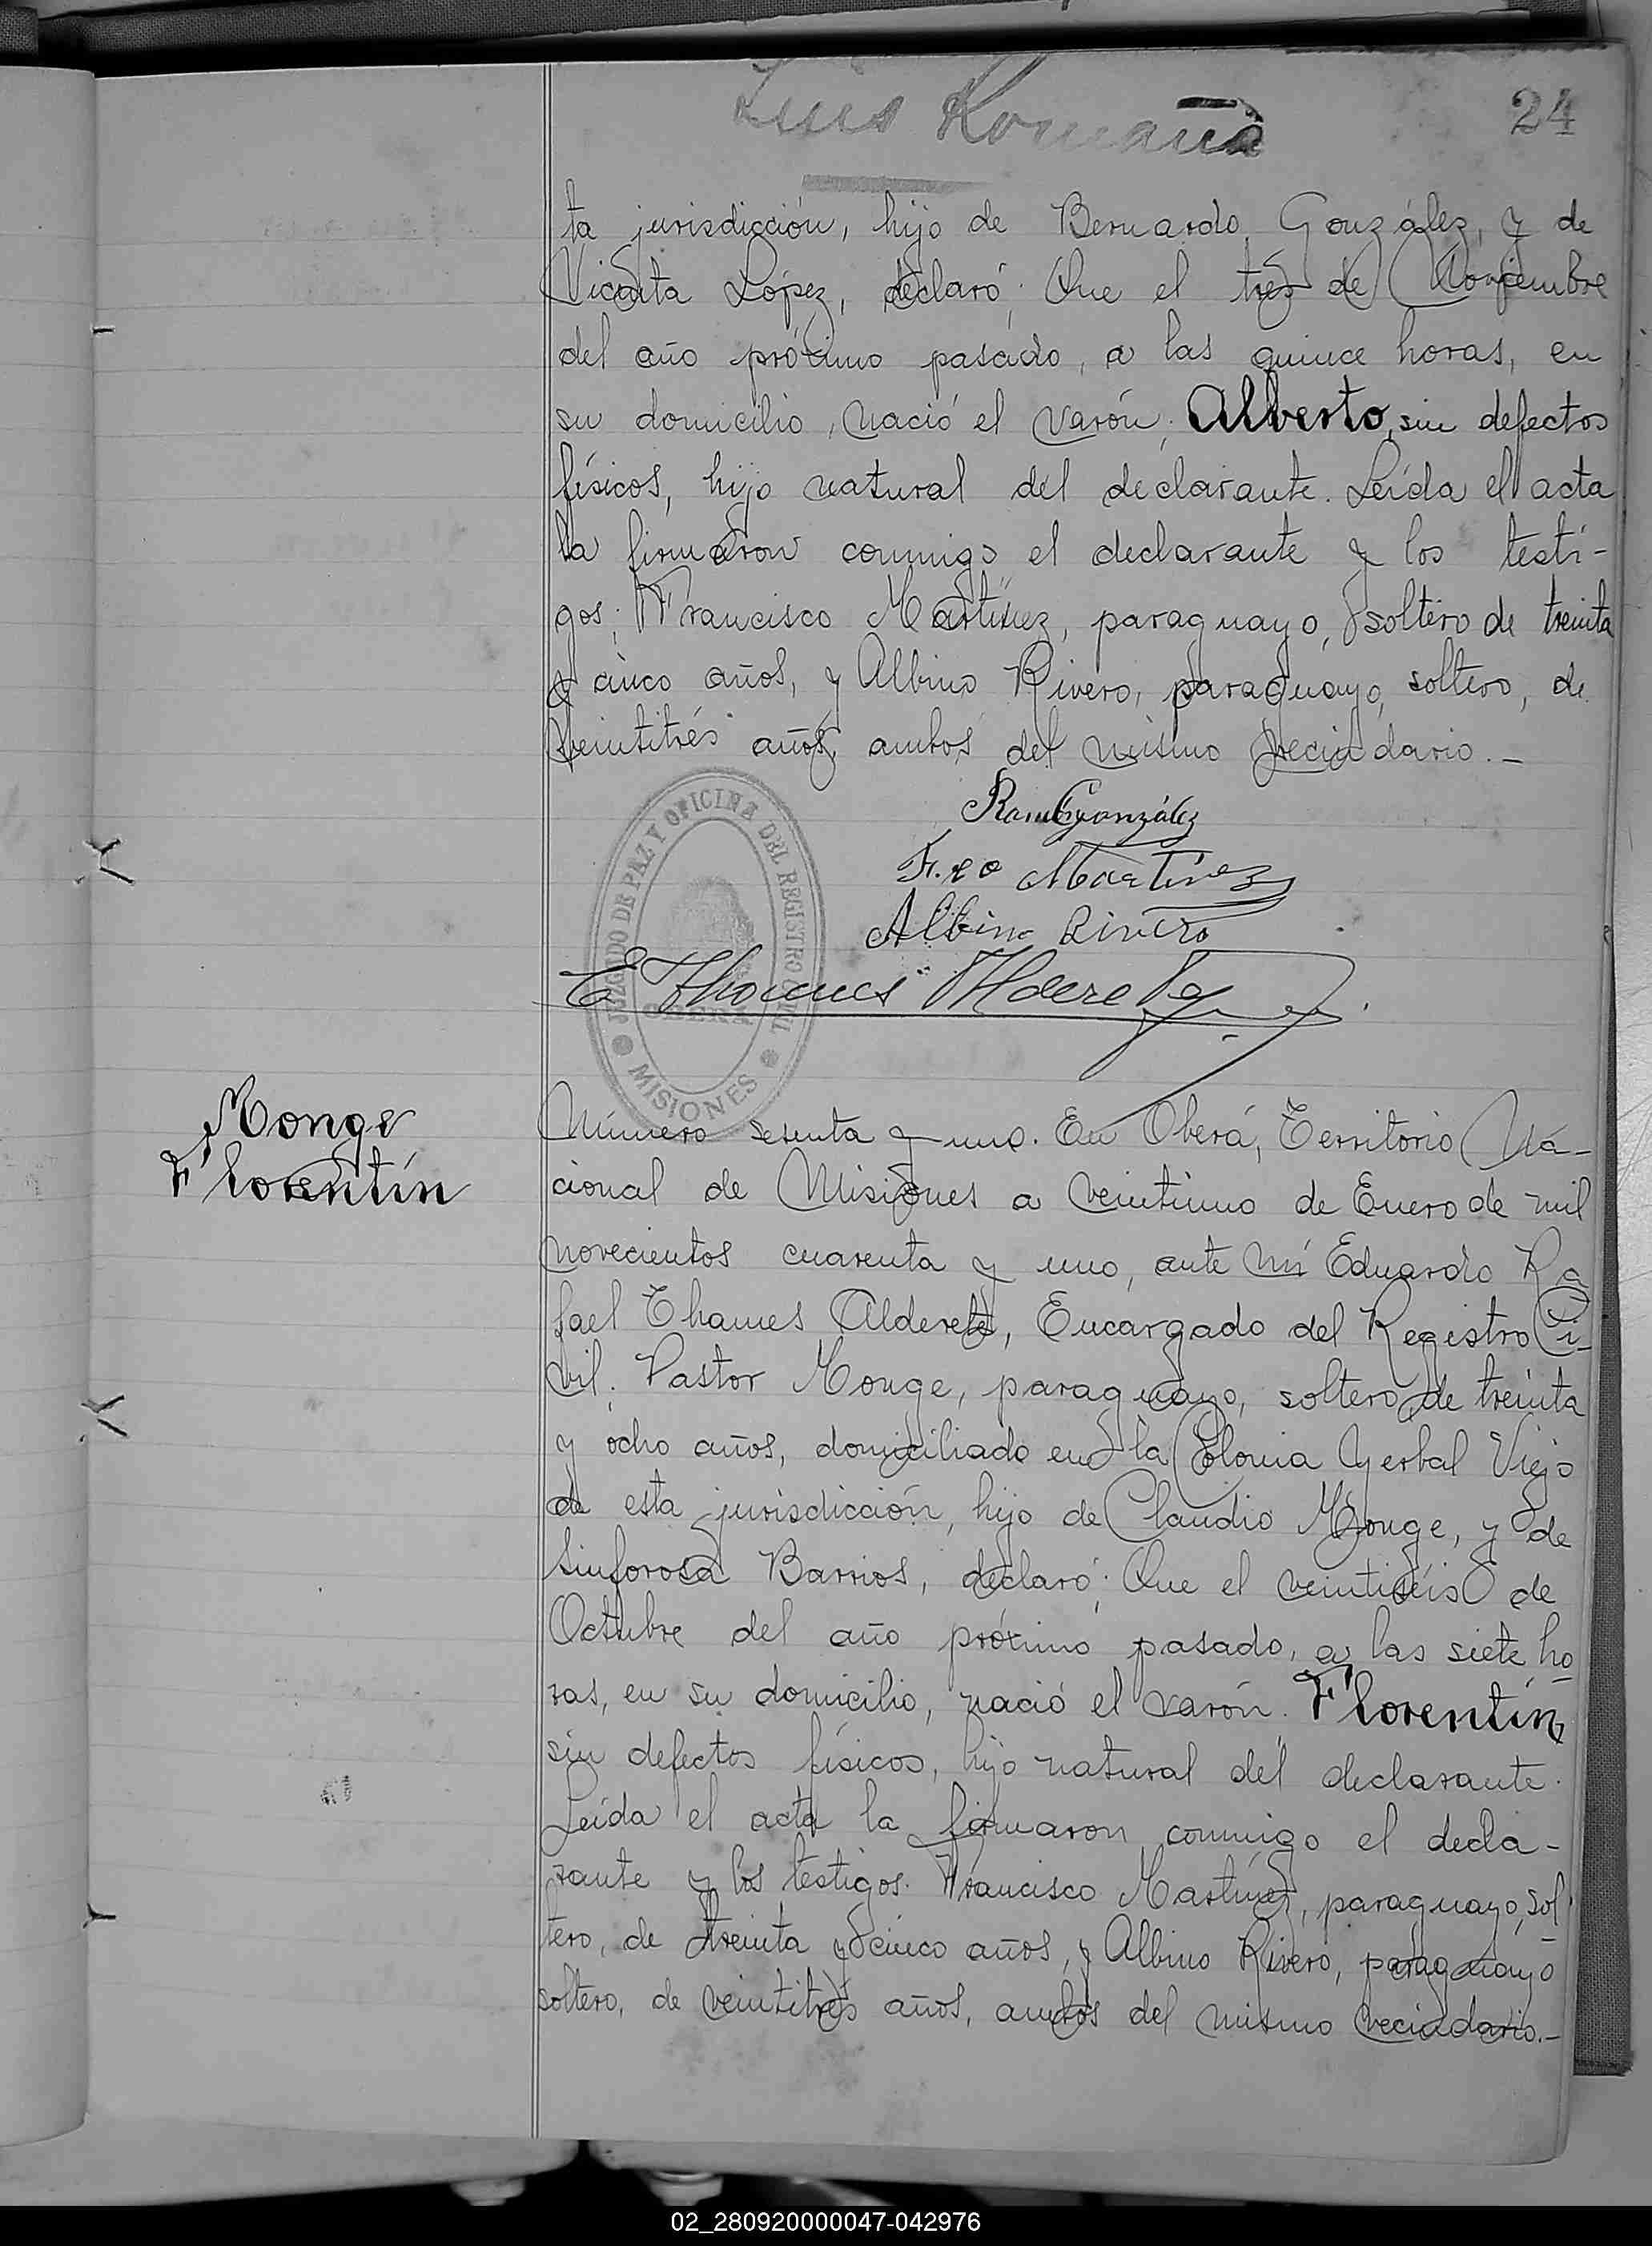 Luis Romaña
24
ta jurisdicción, hijo de Bernardo González, y de
Vicenta López, declaró: Que el tres de Noviembre
del año próximo pasado, a las quince horas, en
su domicilio, nació el varón: Alberto, sin defectos
físicos, hijo natural del declarante. Leída el acta
la firmaron conmigo el declarante y los testi-
gos: Francisco Martínez, paraguayo, soltero de treinta
y cinco años, y Albino Rivero, paraguayo, soltero, de
veintitrés años, ambos del mismo vecindario.-
González
F.co Martinez
Albino Rivero
E Thames Alderete
JUZGADO DE PAZ Y OFICINA DEL REGISTRO CIVIL
OBERÁ
MISIONES
Monge
Florentín
Número sesenta y uno. En Oberá, Territorio Na-
cional de Misiones a veintiuno de Enero de mil
novecientos cuarenta y uno, ante mí Eduardo Ra
fael Thames Alderete, Encargado del Registro Ci-
vil: Pastor Monge, paraguayo, soltero, de treinta
y ocho años, domiciliado en la Colonia Yerbal Viejo
de esta jurisdicción, hijo de Claudio Monge, y de
Sinforosa Barrios, declaró: Que el veintiséis de
Octubre del año próximo pasado, a las siete ho
ras, en su domicilio, nació el varón: Florentín,
sin defectos físicos, hijo natural del declarante.
Leída el acta la firmaron conmigo el decla-
rante y los testigos: Francisco Martínez, paraguayo, sol
tero, de treinta y cinco años, y Albino Rivero, paraguayo
soltero, de veintitrés años, ambos del mismo vecindario.-
02_280920000047-042976